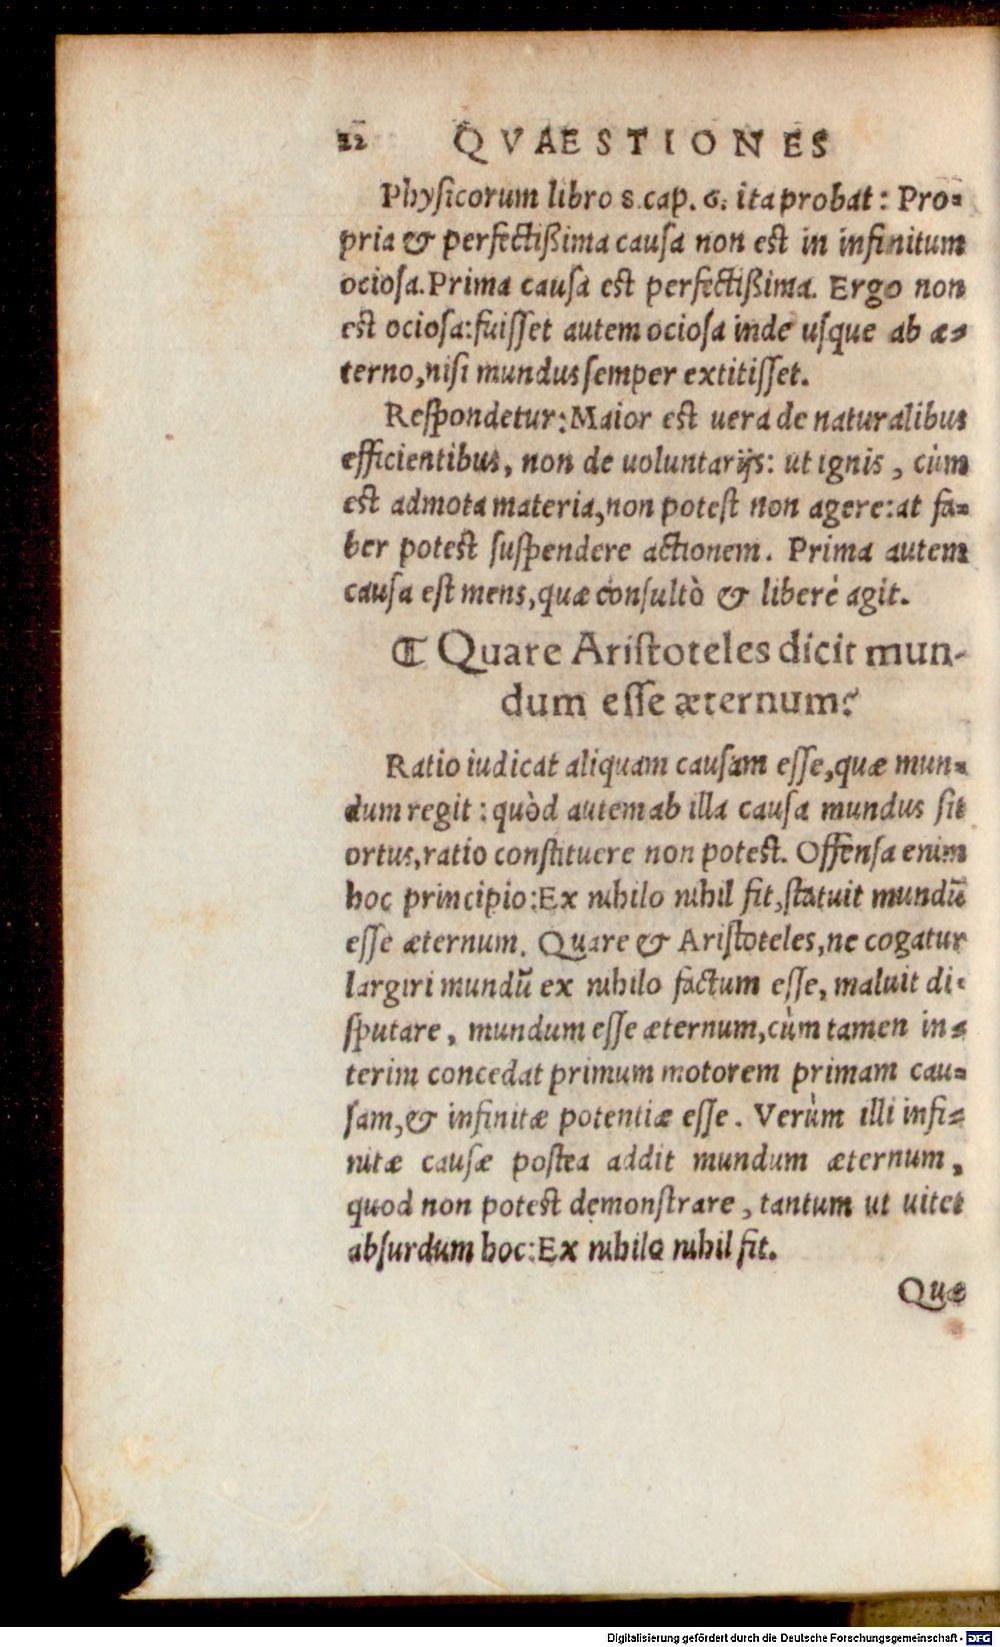 22 QVAESTIONES
Physicorum libro 8. cap. 6. ita probat: Pro-
pria & perfectißima causa non est in infinitum
ociosa. Prima causa est perfectißima. Ergo non
est ociosa: fuisset autem ociosa inde usque ab æ-
terno, nisi mundus semper extitisset.
Respondetur: Maior est uera de naturalibus
efficientibus, non de uoluntarijs: ut ignis, cùm
est admota materia, non potest non agere: at fa-
ber potest suspendere actionem. Prima autem
causa est mens, quæ consultò & liberè agit.
¶ Quare Aristoteles dicit mun-
dum esse æternum?
Ratio iudicat aliquam causam esse, quæ mun-
dum regit: quòd autem ab illa causa mundus sit
ortus, ratio constituere non potest. Offensa enim
hoc principio: Ex nihilo nihil fit, statuit mundũ
esse æternum. Quare & Aristoteles, ne cogatur
largiri mundũ ex nihilo factum esse, maluit di-
sputare, mundum esse æternum, cùm tamen in-
terim concedat primum motorem primam cau-
sam, & infinitæ potentiæ esse. Verùm illi infi-
nitæ causæ postea addit mundum æternum,
quod non potest demonstrare, tantum ut uitet
absurdum hoc: Ex nihilo nihil fit.
Quæ
Digitalisierung gefördert durch die Deutsche Forschungsgemeinschaft - DFG